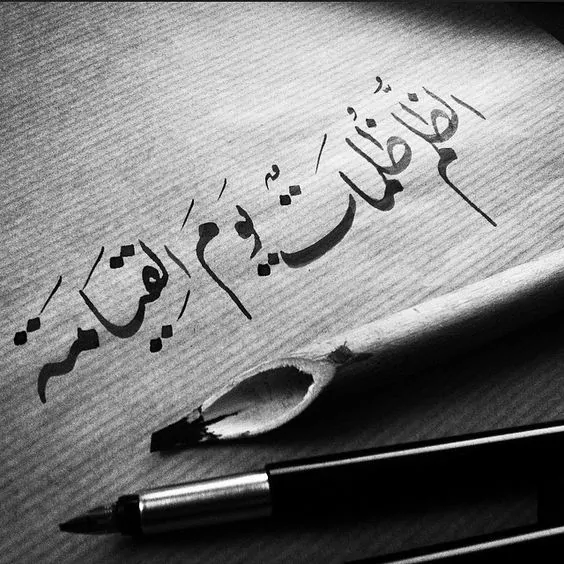 الظلم ظُلُماتٌ يَومَ القِيَامَةَ